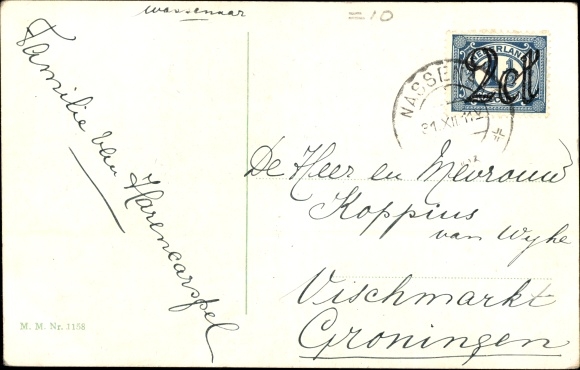 Wassenaar
=10
NEDERLAND
2 ct
NASSE
31.XII.11
Familie van Harencarspel
De Heer en Mevrouw
Koppius
van Wyhe
Vischmarkt
Groningen
M. M. Nr. 1158